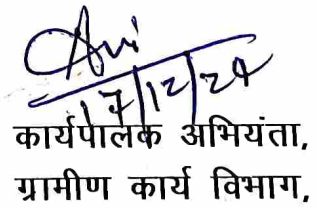 17/12/24
कार्यपालक अभियंता,
ग्रामीण कार्य विभाग,